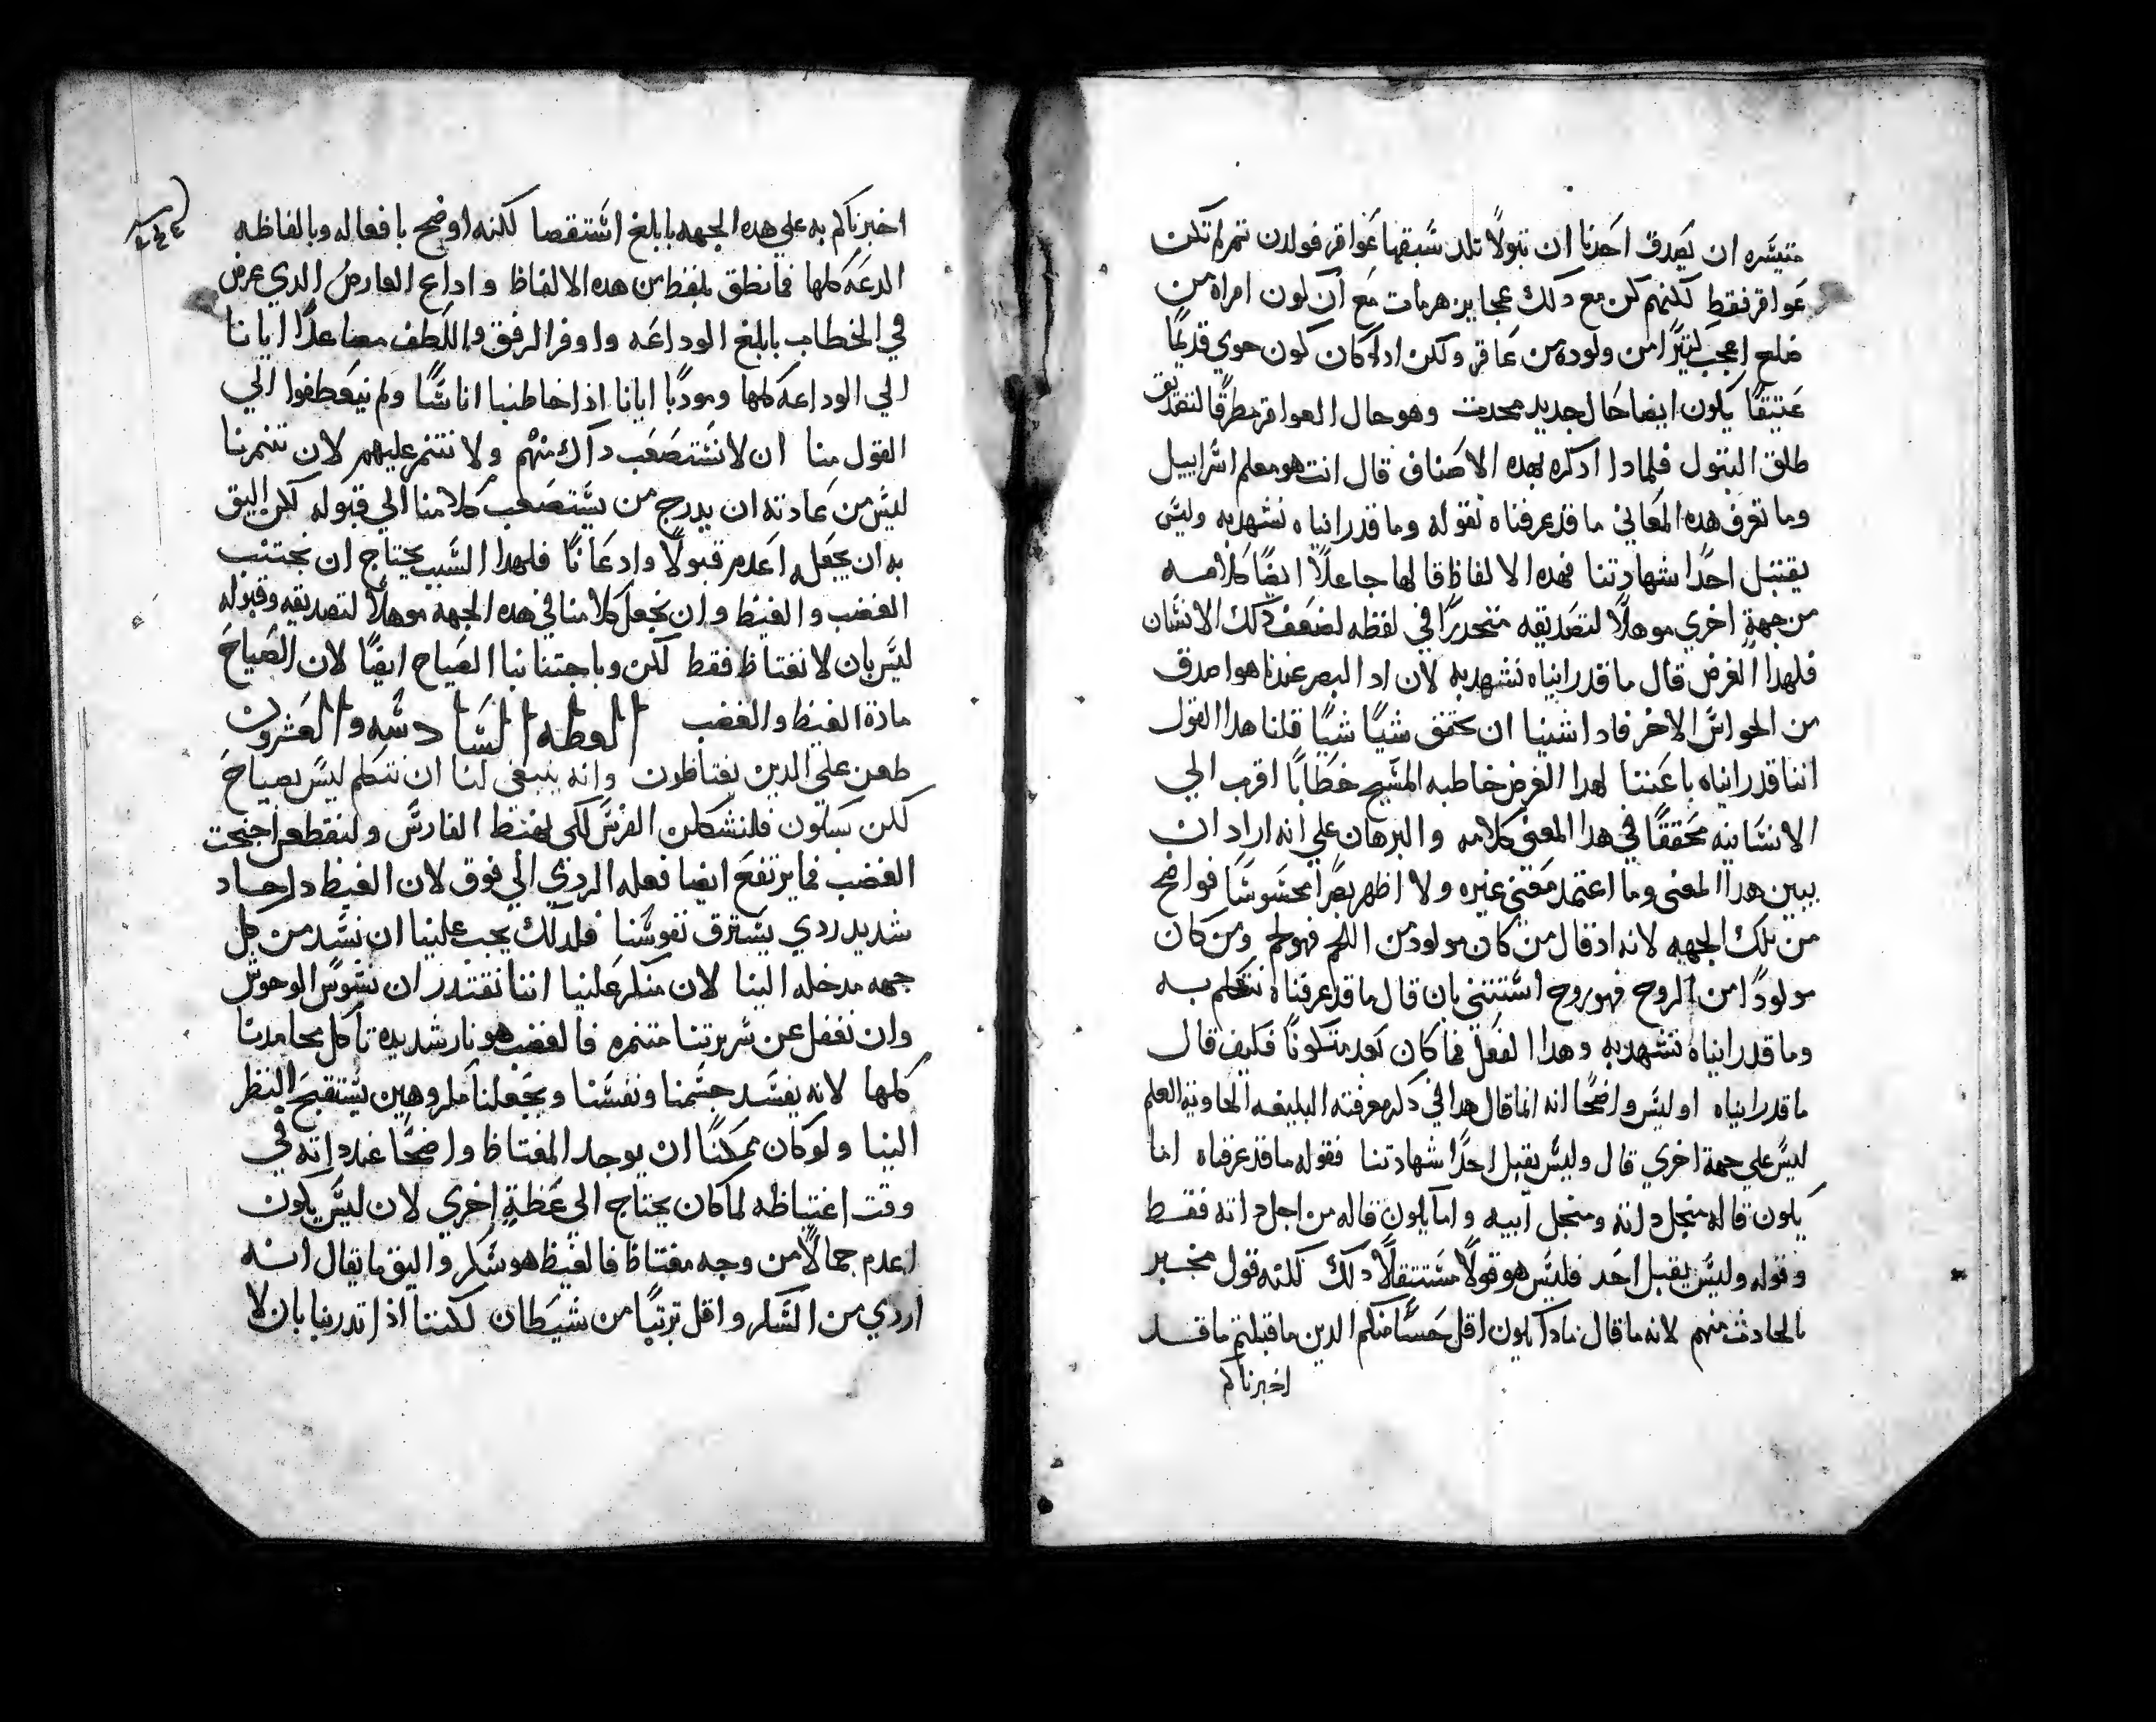 متيسره ان يصدق احدنا ان بتولا تلد سبقها عواقر فولدن ثم لم تكن
عواقر فقط لكنهم كن مع دلك عجايز هرمات مع ان كون امراه من
ضلع اعجب كثيرا من ولوده من عاقر ولكن اد كان كون حوي قديما
عتيقا يكون ايضا حال جديد محدث وهو حال العواقر مطرقا لتصديق
طلق البتول فلمادا ادكره بهده الاصناف قال انت هو معلم اسراييل
وما تعرف هده المعاني ما قد عرفناه نقوله وما قد راىناه نشهد به وليس
يقتبل احدا شهادتنا فهده الالفاظ قالها جاعلا ايضا كلامه
من جهة اخري موهلا لتصديقه متحدرا في لفظه لضعف دلك الانسان
فلهدا الغرض قال ما قد رايناه نشهد به لان اد البصر عندنا هو اصدق
من الحواس الاخر فادا شينا ان نحقق شيا شيا قلنا هدا القول
اننا قد رايناه باعيننا لهدا الغرض خاطبه المسيح خطابا اقرب الي
الانسانيه محققا في هدا المعني كلامه والبرهان علي انه اراد ان
يبين هدا المعني وما اعتمد معني غيره ولا اظهر بصرا محسوسا فواضح
من تلك الجهه لانه اد قال من كان مولود من اللحم فهو لحم ومن كان
مولودا من الروح فهو روح استثني بان قال ما قد عرفناه نتكلم به
وما قد رايناه نشهد به وهدا الفعل فما كان بعد متكونا فكيف قال
ما قد رايناه اوليس واضحا انه انما قال هدا في دكر معرفته البليغه الحاوية العلم
ليس علي جهة اخري قال وليس يقبل احدا شهادتنا فقوله ما قد عرفناه اما
يكون قاله منجل داته ومنجل ابيه واما يكون قاله من اجل داته فقط
وقوله وليس يقبل احد فليس هو قولا مستثقلا دلك لكنه قول مخبر
بالحادث منهم لانه ما قال مادا يكون اقل حسا منكم الدين ما قبلتم ما قد
اخبرناكم
اخبرناكم به علي هده الجهه بابلغ استقصا لكنه اوضح بافعاله وبالفاظه
الدعه كلها فما نطق بلفظ من هده الالفاظ واداع العارض الدي عرض
في الخطاب بابلغ الوداعه واوفر الرفق واللطف معا علا ايانا
الي الوداعه كلها ومودبا ايانا اذا خاطبنا اناسا ولم ينعطفوا الي
القول منا ان لا نستصعب داك منهم ولا نتنمر عليهم لان تنمرنا
ليس من عادته ان يدرج من يستصعب كلامنا الي قبوله لكن اليق
به ان يجعله اعدم قبولا وادعانا فلهدا السبب يحتاج ان نجتنب
الغضب والغيظ وان نجعل كلامنا في هده الجهه موهلا لتصديقه وقبوله
ليس بان لا نغتاظ فقط لكن وباجتنابنا الصياح ايضا لان الصياح
مادة الغيظ والغضب العظه السادسه والعشرون
طعن علي الدين يغتاظون وانه ينبغي لنا ان نتكلم ليس بصياح
لكن بسكون فلنشكلن الفرس لكي نهبط الفارس ولنقطعن اجنحت
الغضب فما يرتفع ايضا فعله الردي الي فوق لان الغيظ دا حاد
شديد ردي يسترق نفوسنا فلدلك يجب علينا ان نسد من كل
جهه مدخله الينا لان منكر علينا اننا نقتدر ان نسوس الوحوش
وان نغفل عن سريرتنا متنمره فالغضب هو نار شديده تاكل محامدنا
كلها لانه يفسد جسمنا ونفسنا ويجعلنا مكروهين يستقبح النظر
الينا ولو كان ممكنا ان يوجد المغتاظ واضحا عند داته في
وقت اغتياظه لما كان يحتاج الي عظة اخري لان ليس يكون
اعدم جمالا من وجه مغتاظ فالغيظ هو سكر واليق ما يقال انه
اردي من السكر واقل ترتبا من شيطان لكننا اذا تدربنا بان لا